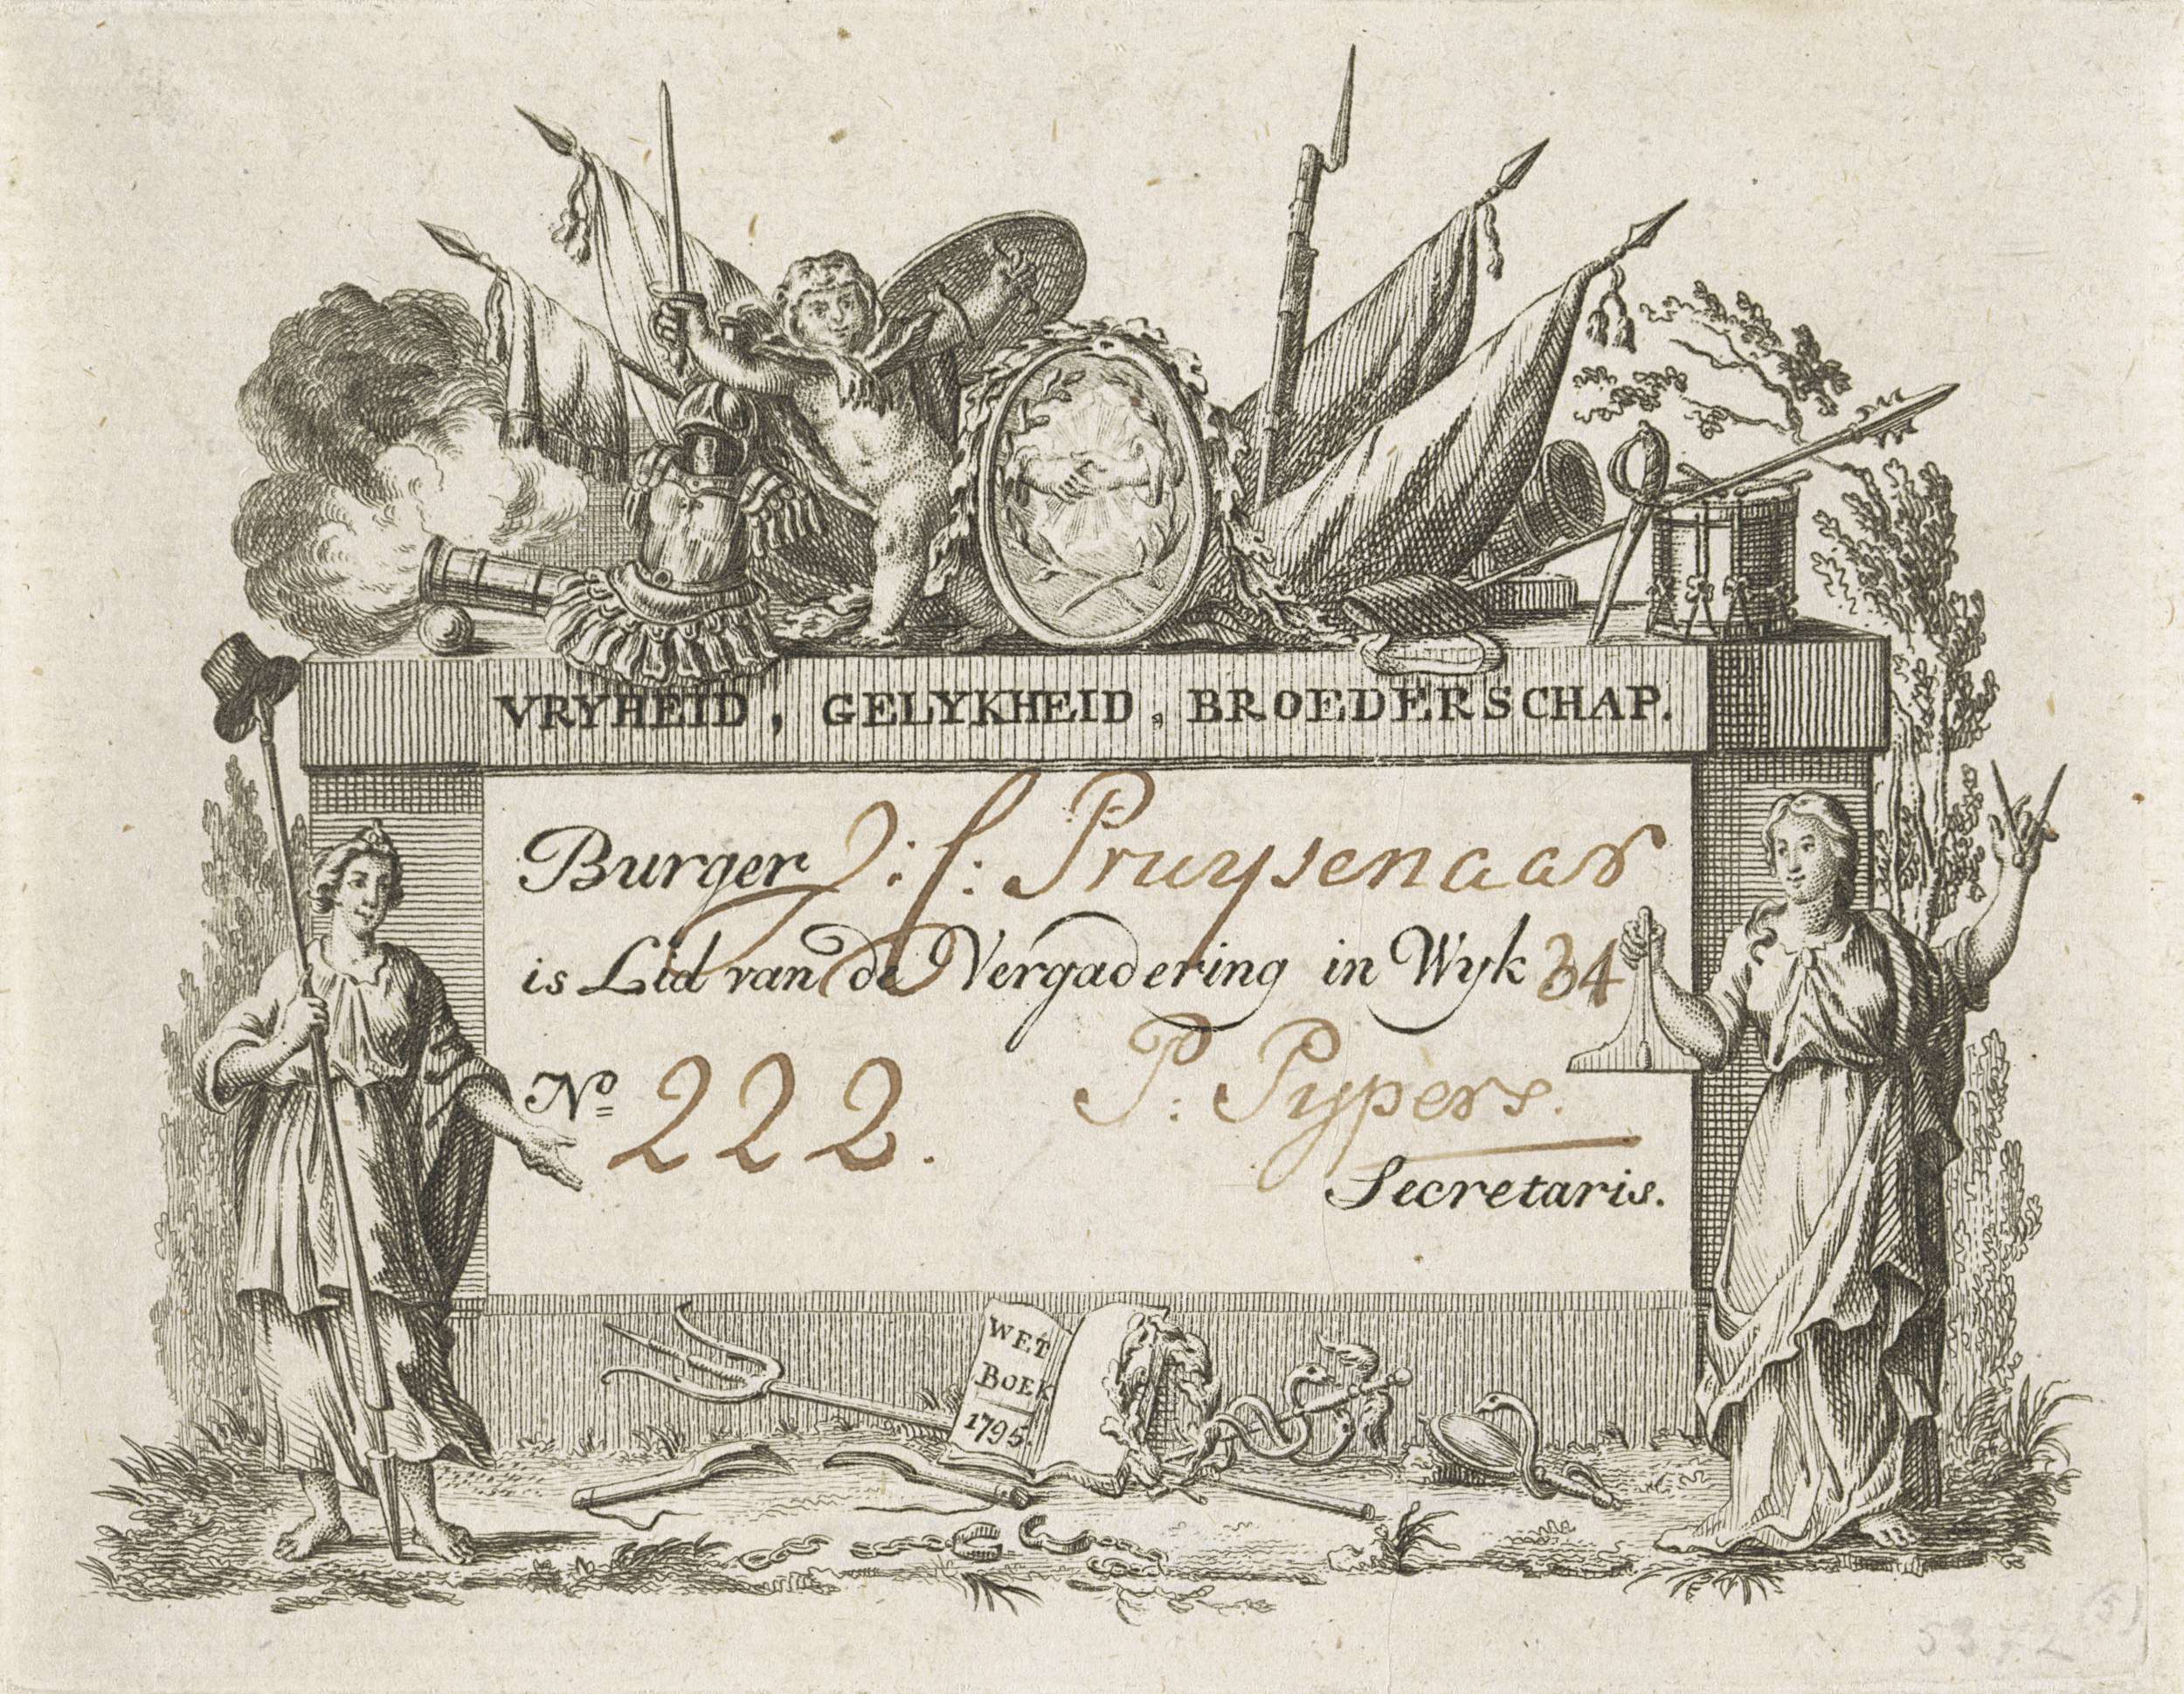 VRYHEID, GELYKHEID, BROEDERSCHAP.
Burger J: f: Pruysenaar
is Lid van de Vergadering in Wyk 34
No 222. P: Pypers.
Secretaris.
WET
BOEK
1795.
(5)